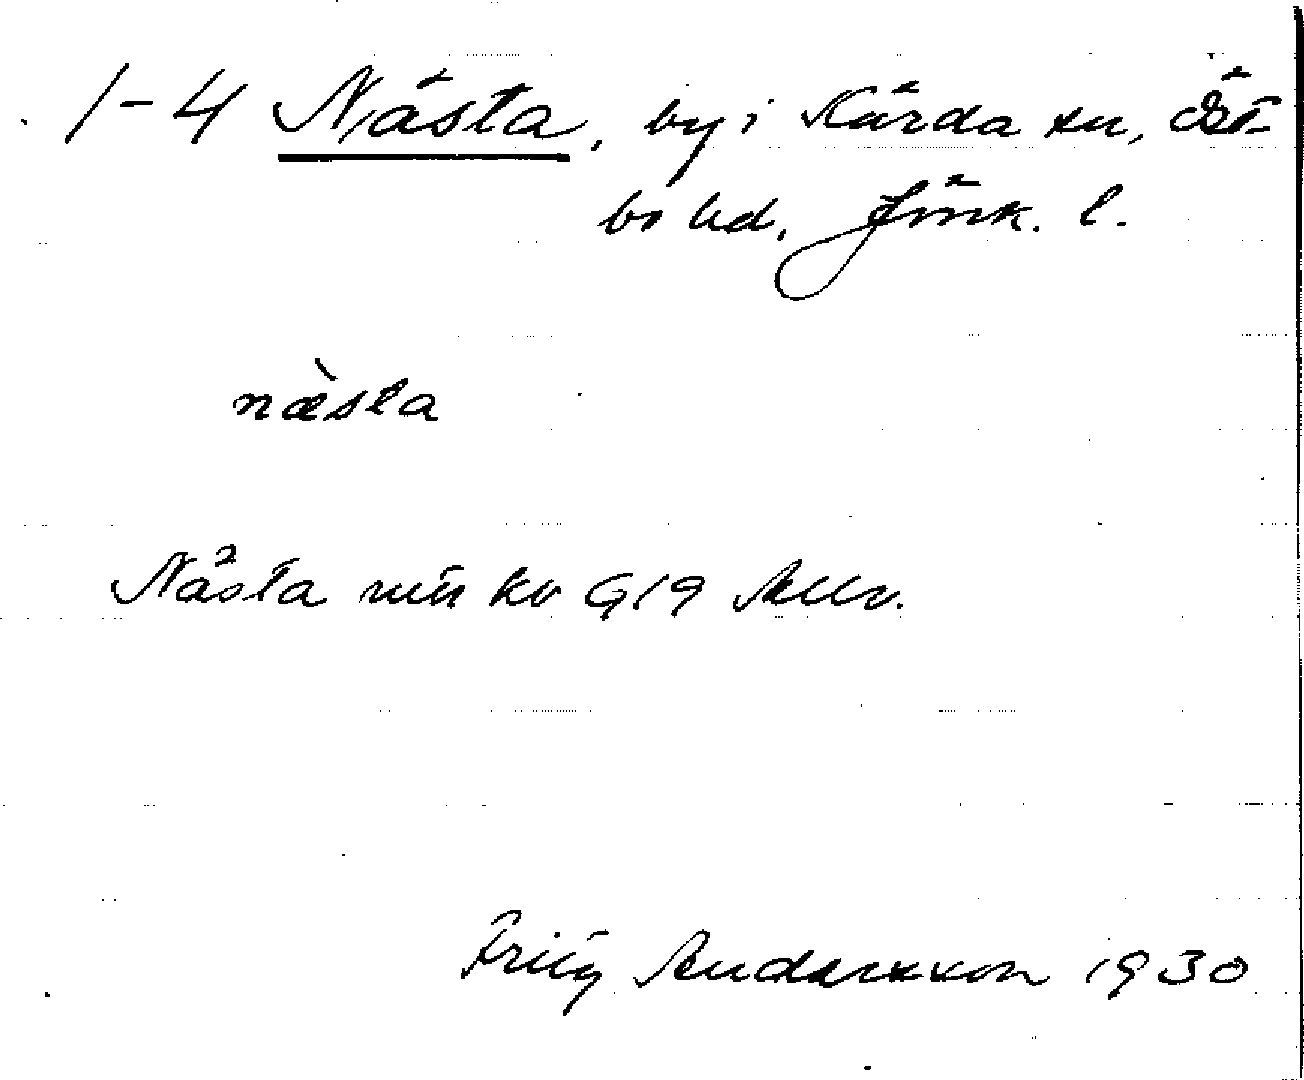 1-4 Nästa, by i Kärda sn, Öst-
bo hd, Jönk. l.
næ̀sta
Nästa mtl kv G19
Fritz Andersson 1930